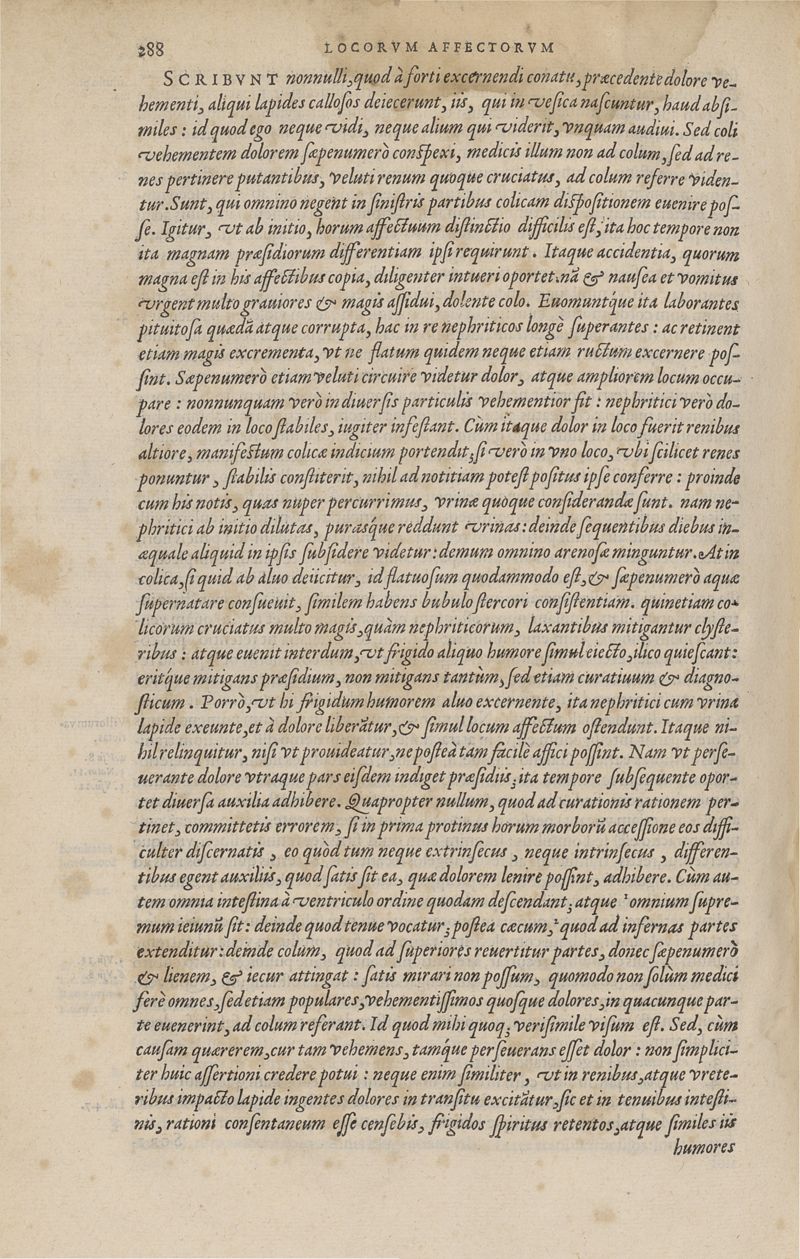 288 LOCORVM AFFECTORVM
SCRIBVNT nonnulli, quod à forti excernendi conatu, præcedente dolore ve-
hementi, aliqui lapides callosos deiecerunt, iis, qui in vesica nascuntur, haud absi-
miles : id quod ego neque vidi, neque alium qui viderit, vnquam audiui. Sed coli
vehementem dolorem sæpenumerò conspexi, medicis illum non ad colum, sed ad re-
nes pertinere putantibus, veluti renum quoque cruciatus, ad colum referre viden-
tur. Sunt, qui omnino negent in sinistris partibus colicam dispositionem euenire pos-
se. Igitur, vt ab initio, horum affectuum distinctio difficilis est, ita hoc tempore non
ita magnam præsidiorum differentiam ipsi requirunt. Itaque accidentia, quorum
magna est in his affectibus copia, diligenter intueri oportet. nā & nausea et vomitus
vrgent multo grauiores & magis assidui, dolente colo. Euomuntq́ue ita laborantes
pituitosa quædā atque corrupta, hac in re nephriticos longè superantes : ac retinent
etiam magis excrementa, vt ne flatum quidem neque etiam ructum excernere pos-
sint. Sæpenumerò etiam veluti circuire videtur dolor, atque ampliorem locum occu-
pare : nonnunquam verò in diuersis particulis vehementior fit : nephritici verò do-
lores eodem in loco stabiles, iugiter infestant. Cùm itaque dolor in loco fuerit renibus
altiore, manifestum colicæ indicium portendit, si verò in vno loco, vbi scilicet renes
ponuntur, stabilis constiterit, nihil ad notitiam potest positus ipse conferre : proinde
cum his notis, quas nuper percurrimus, vrinæ quoque considerandæ sunt. nam ne-
phritici ab initio dilutas, purasq́ue reddunt vrinas: deinde sequentibus diebus in-
æquale aliquid in ipsis subsidere videtur: demum omnino arenosæ minguntur. At in
colica, si quid ab aluo deiicitur, id flatuosum quodammodo est, & sæpenumerò aquæ
supernatare consueuit, similem habens bubulo stercori consistentiam. quinetiam co-
licorum cruciatus multo magis, quàm nephriticorum, laxantibus mitigantur clyste-
ribus : atque euenit interdum, vt frigido aliquo humore simul eiecto, ilico quiescant:
eritq́ue mitigans præsidium, non mitigans tantùm, sed etiam curatiuum & diagno-
sticum. Porrò, vt hi frigidum humorem aluo excernente, ita nephritici cum vrina
lapide exeunte, et à dolore liberātur, & simul locum affectum ostendunt. Itaque ni-
hil relinquitur, nisi vt prouideatur, ne posteà tam facilè affici possint. Nam vt perse-
uerante dolore vtraque pars eisdem indiget præsidiis, ita tempore subsequente opor-
tet diuersa auxilia adhibere. Quapropter nullum, quod ad curationis rationem per-
tinet, committetis errorem, si in prima protinus horum morborū accessione eos diffi-
culter discernatis, eo quòd tum neque extrinsecus, neque intrinsecus, differen-
tibus egent auxiliis, quod satis sit ea, quæ dolorem lenire possint, adhibere. Cùm au-
tem omnia intestina à ventriculo ordine quodam descendant, atque omnium supre-
mum ieiunū sit: deinde quod tenue vocatur, postea cæcum, quod ad infernas partes
extenditur: deinde colum, quod ad superiores reuertitur partes, donec sæpenumerò
& lienem, & iecur attingat : satis mirari non possum, quomodo non solùm medici
ferè omnes, sed etiam populares, vehementissimos quosque dolores, in quacunque par-
te euenerint, ad colum referant. Id quod mihi quoq; verisimile visum est. Sed, cùm
causam quærerem, cur tam vehemens, tamq́ue perseuerans esset dolor : non simplici-
ter huic assertioni credere potui : neque enim similiter, vt in renibus, atque vrete-
ribus impacto lapide ingentes dolores in transitu excitātur, sic et in tenuibus intesti-
nis, rationi consentaneum esse censebis, frigidos spiritus retentos, atque similes iis
humores